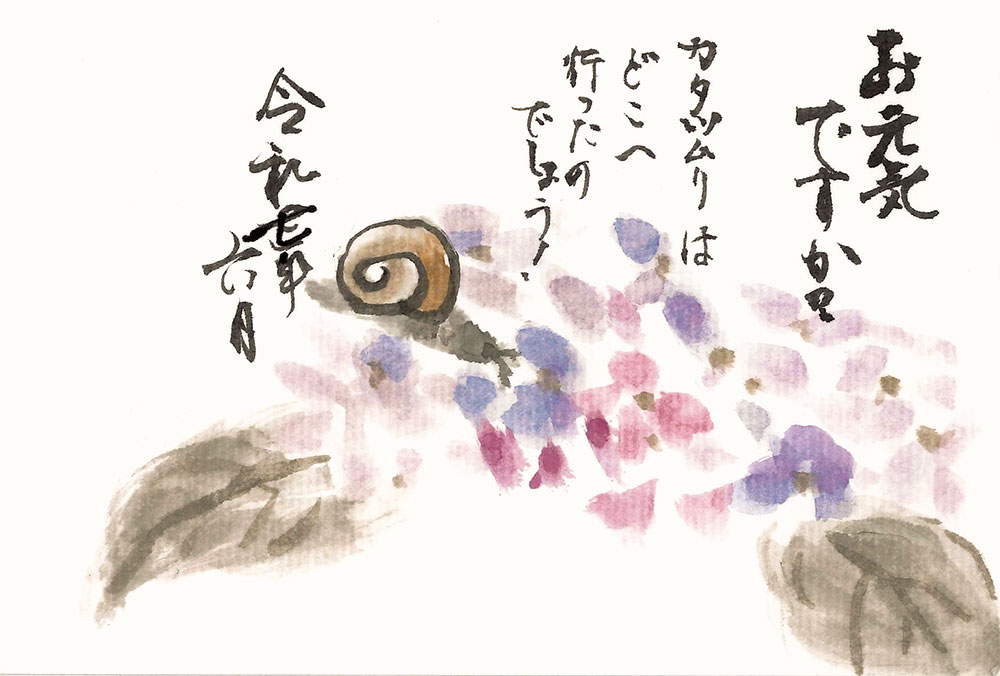 お元気
ですか
カタツムリは
どこへ
行ったの
でしょう!
令和七年
六月